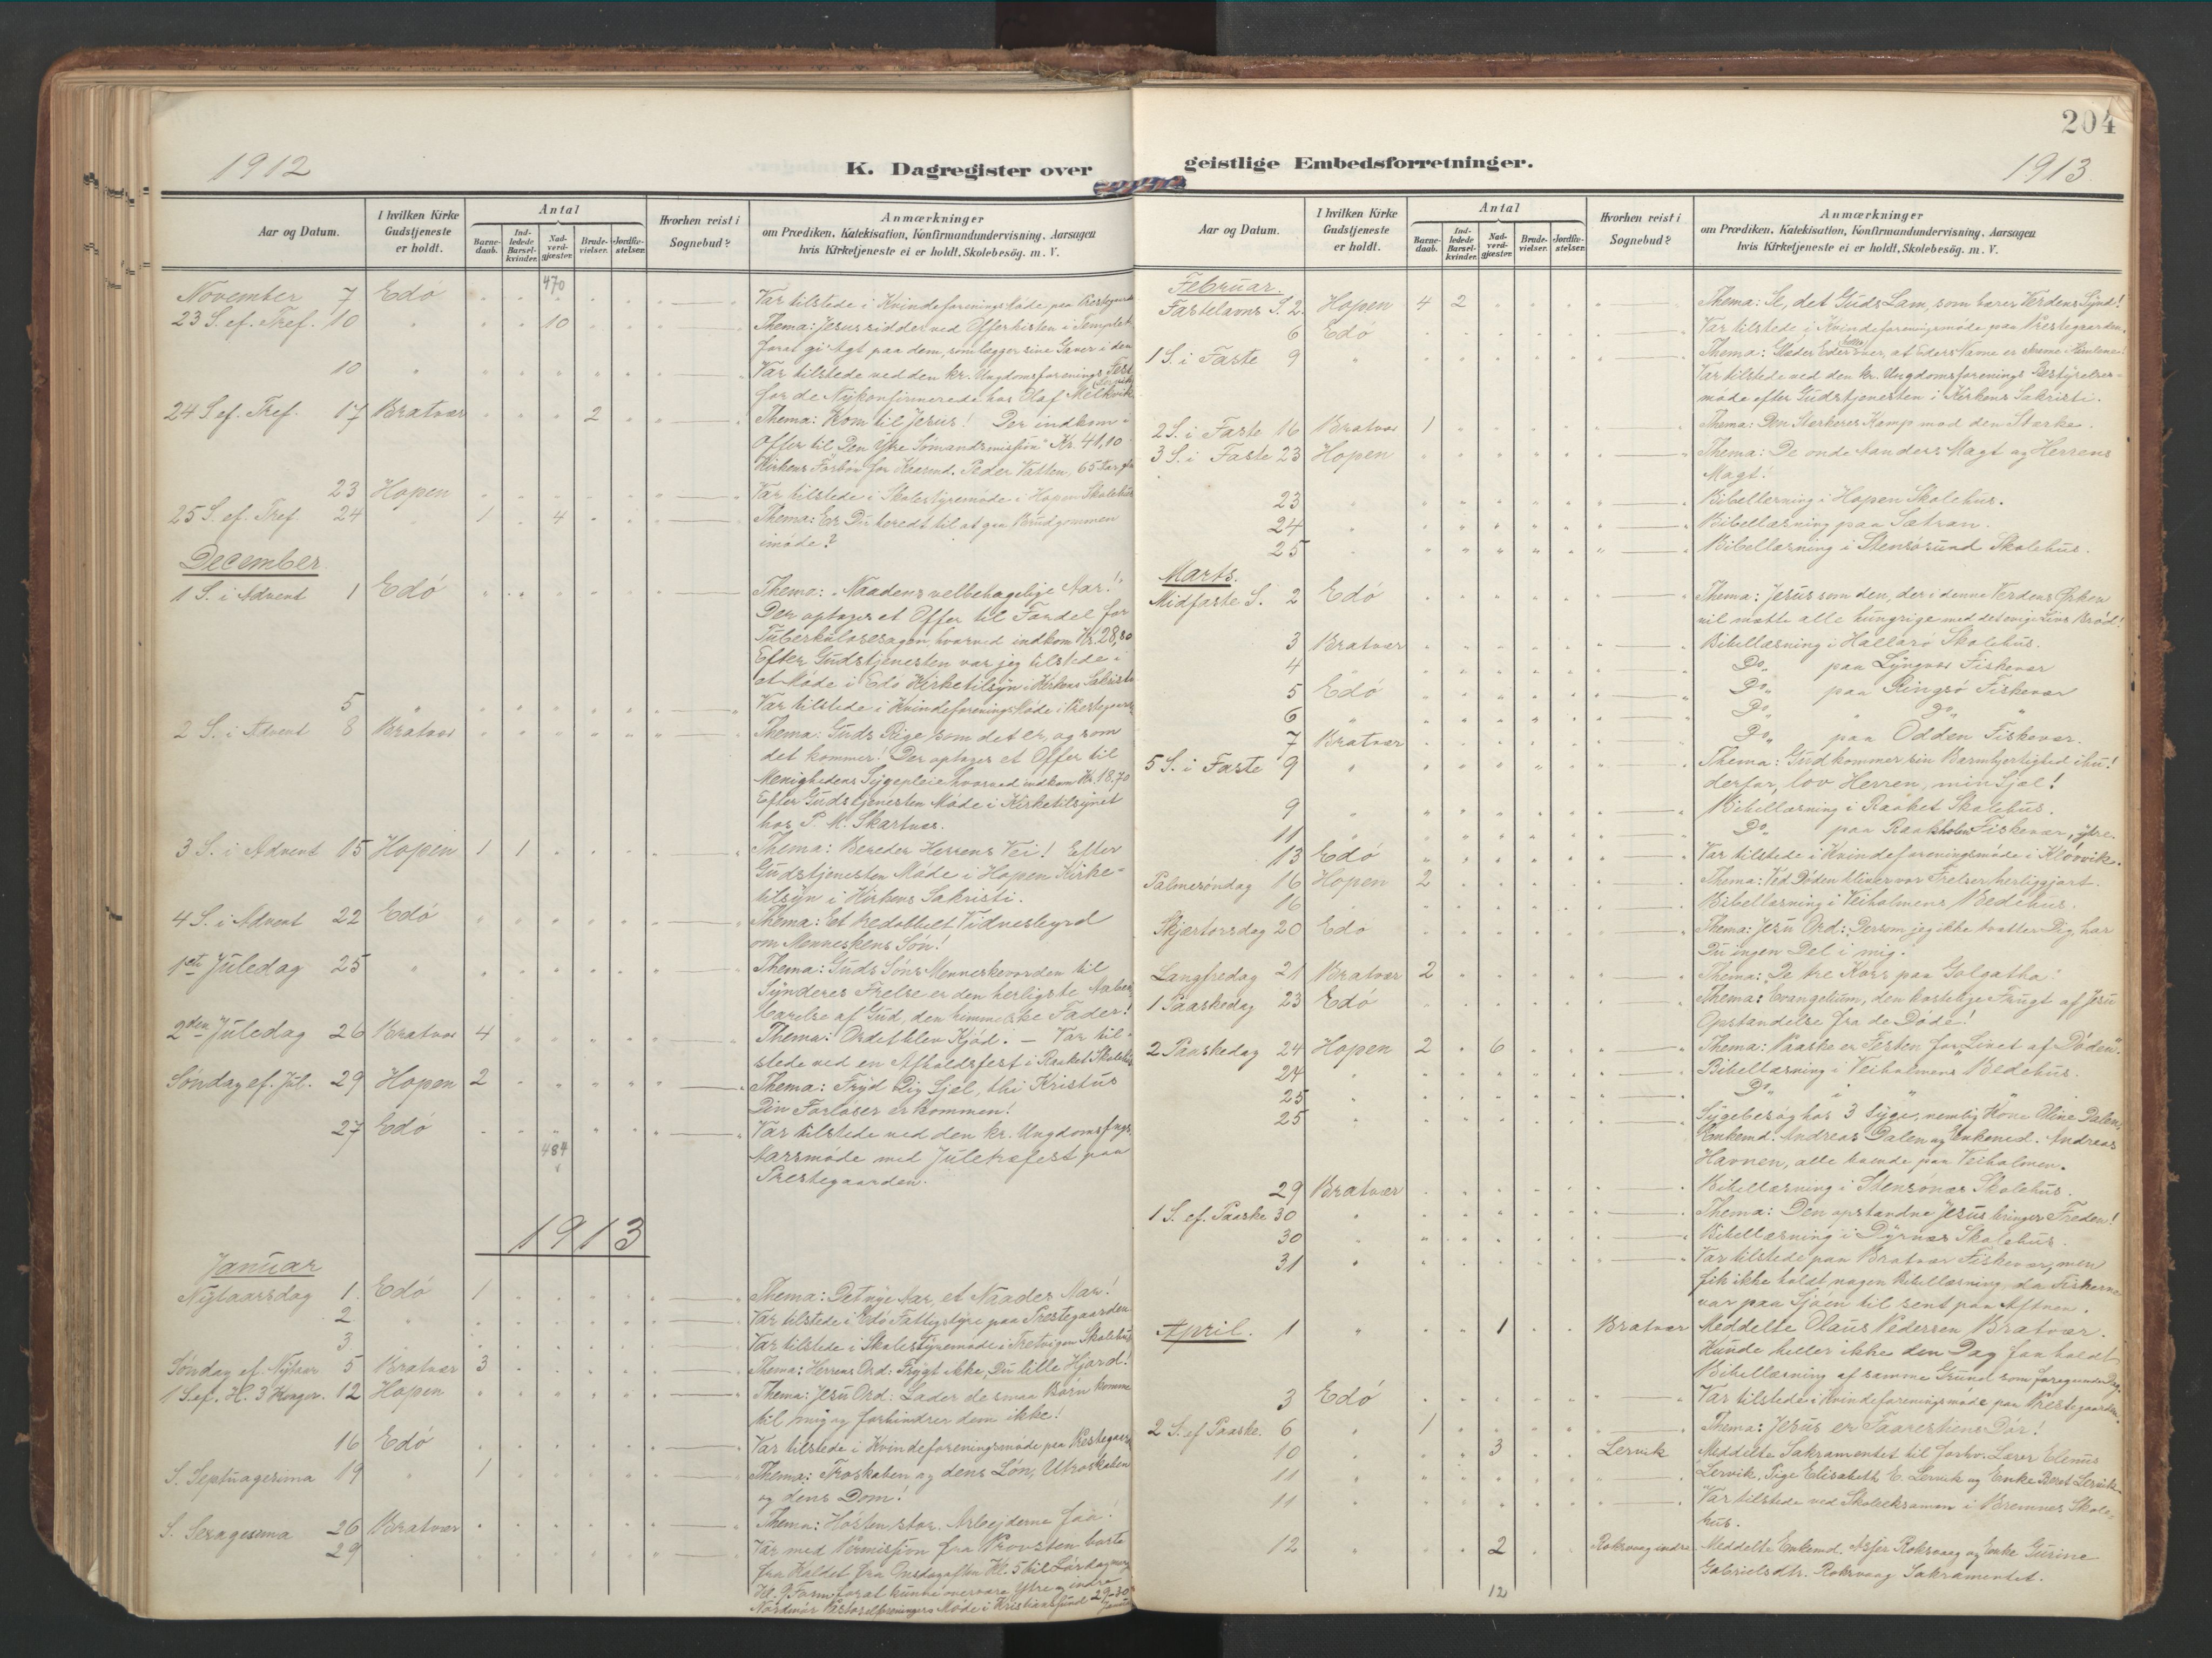 204
1912
K. Dagregister over
geistlige Embedsforretninger.
1913
Aar og Datum.
I hvilken Kirke Gudstjeneste er holdt.
Antal
Barnedaab.
Indledede Barselkvinder.
Nadverdgjæster.
Brudevielser.
Jordfæstelser.
Hvorhen reist i Sognebud?
Anmærkninger
om Prædiken, Katekisation, Konfirmandundervisning, Aarsagen
hvis Kirketjeneste ei er holdt, Skolebesög. m. V.
470
November 7 Edö Var tilstede i Kvindeforeningsmöde paa Prestegaarden
23 S. ef. Tref. 10 " 10 Thema: Jesus sidder ved Offerkisten i Templet
forat gi Agt paa dem, som lægger sine Gaver i den
10 " Var tilstede ved den kr. Ungdomsforenings Fest
for de Nykonfirmerede hos Olaf Melkvik
24 S. ef. Tref. 17 Bratvær 2 Thema: Kom til Jesus! Der indkom i
Offer til "Den ydre Sömandsmission" Kr. 41,10
Kirkens Forbön for Kaarmd. Peder Vatten, 65 Aar gl.
23 Hopen Var tilstede i Skolestyremöde i Hopen Skolehus
25 S. ef. Tref. 24 " 1 4 Thema: Er Du beredt til at gaa Brudgommen
imöde?
December
1 S. i Advent 1 Edö Thema: "Naadens velbehagelige Aar!"
Der optoges et Offer til Fordel for
Tuberkulosesagen, hvorved indkom Kr. 28,80
Efter Gudstjenesten var jeg tilstede i
et Möde i Edö Kirketilsyn i Kirkens Sakristi
5 " Var tilstede i Kvindeforenings Möde i Prestegaarden
2 S. i Advent 8 Bratvær Thema: Guds Rige, som det er, og som
det kommer! Der optoges et Offer til
Menighedens Sygepleie hvorved indkom Kr. 18.70
Efter Gudstjenesten Möde i Kirketilsynet
hos P. M. Skartvær.
3 S. i Advent 15 Hopen 1 1 Thema: Bereder Herrens Vei! Efter
Gudstjenesten Möde i Hopen Kirke-
tilsyn i Kirkens Sakristi.
4 S. i Advent 22 Edö Thema: Et tredobbelt Vidnesbyrd
om Menneskens Sön!
1ste Juledag 25 " Thema: Guds Söns Menneskevorden til
Synderes Frelse er den herligste Aaben-
barelse af Gud, den himmelske Fader!
2den Juledag 26 Bratvær 4 Thema: Ordet blev Kjöd. – Var til-
stede ved en Afholdsfest i Raaket Skolehus
Söndag ef. Jul. 29 Hopen 2 Thema: Fryd Dig Sjæl, thi Kristus
Din Forlöser er kommen!
27 Edö Var tilstede ved den kr. Ungdoms fngs.
484
Aarsmöde med Juletræfest paa
Prestegaarden.
1913
Januar
Nytaarsdag 1. Edö 1 Thema: Det nye Aar, et Naades Aar!
2 " Var tilstede i Edö Fattigstyre paa Prestegaarden
3 " Var tilstede i Skolestyremöde i Tretvigen Skolehus
Söndag ef. Nytaar 5 Bratvær 3 Thema: Herrens Ord: Frygt ikke, Du lille Hjord!
1 S. ef. H. 3 Konger. 12 Hopen Thema: Jesu Ord: Lader de smaa Börn komme
til mig og forhindrer dem ikke!
16 Edö Var tilstede i Kvindeforeningsmöde paa Prestegaarden
S. Septuagesima 19 " 1 Thema: Troskaben og dens Lön, Utroskaben
og dens Dom!
S. Sexagesima 26 Bratvær Thema: Hösten stor. Arbejderne faa!
29 Var med Permission fra Provsten borte
fra Kaldet fra Onsdagaften Kl. 5 til Lördagmorg
Kl. 9 Form. forat kunne overvære Ytre og indre
Nordmör Pastoralforenings Möde i Kristianssund 29-30 Januar
Aar og Datum.
I hvilken Kirke Gudstjeneste er holdt.
Antal
Barnedaab.
Indledede Barselkvinder.
Nadverdgjæster.
Brudevielser.
Jordfæstelser.
Hvorhen reist i Sognebud?
Anmærkninger
om Prædiken, Katekisation, Konfirmandundervisning, Aarsagen
hvis Kirketjeneste ei er holdt, Skolebesög. m. V.
Februar.
Fastelavns S. 2. Hopen 4 2 Thema: Se, det Guds Lam, som bærer Verdens Synd!
6 Edö Var tilstede i Kvindeforeningsmöde paa Prestegaarden.
1 S. i Faste 9 " Thema: Glæder Eder over, at Eders Navne er skrevne i Himlene!
Var tilstede ved den kr. Ungdomsforenings Bestyrelses-
möde efter Gudstjenesten i Kirkens Sakristi.
2 S. i Faste 16 Bratvær 1 Thema: Den Stærkeres Kamp mod den Stærke.
3 S. i Faste 23 Hopen Thema: De onde Aanders Magt og Herrens
Magt!
23 Bibellæsning i Hopen Skolehus.
24 " Bibellæsning paa Sætran.
25 " Bibellæsning i Stensösund Skolehus.
Marts.
Midfaste S. 2 Edö Thema: Jesus som den, der i denne Verdens Örken
vil mætte alle hungrige med det evige Livs Bröd!
3 Bratvær Bibellæsning i Hallarö Skolehus.
4 " Do. paa Lyngvær Fiskevær
5 Edö Do. paa Ringsö Fiskevær
6 " Do. " Do. "
7 Bratvær Do. paa Odden Fiskevær.
5 S. i Faste 9 " Thema: Gud kommer sin Barmhjertighed ihu!
derfor, lov Herren, min Sjæl!
9 Bibellæsning i Raaket Skolehus.
11 " Do. paa Raaksholm Fiskevær, ytre.
13 Edö Var tilstede i Kvindeforeningsmöde i Klörvik.
Palmesöndag 16 Hopen 2 Thema: Ved Döden bliver vor Frelser herliggjort.
16 Bibellæsning i Veiholmens Bedehus.
Skjærtorsdag 20 Edö Thema: Jesu Ord: Dersom jeg ikke tvætter Dig, har
Du ingen Del i mig!
Langfredag 21 Bratvær 2 Thema: De tre Kors paa Golgatha!
1 Paaskedag 23 Edö Thema: Evangelium, den kostelige Frugt af Jesu
Opstandelse fra de Döde!
2 Paaskedag 24 Hopen 2 6 Thema: Paaske er Festen for "Livet af Döden".
24 " Bibellæsning i Veiholmens Bedehus.
25 " Do. i " "
25 " Sygebesög hos 3 Syge, nemlig Kone Oline Dalen,
Enkemd. Andreas Dalen og Enkemd. Andreas
Havnen, alle boende paa Veiholmen.
29 Bratvær Bibellæsning i Stensönæs Skolehus.
1 S. ef. Paaske 30 " Thema: Den opstandne Jesus bringer Freden!
30 " Bibellæsning i Dyrnæs Skolehus.
31 " Var tilstede paa Bratvær Fiskevær, men
fik ikke holdt nogen Bibellæsning, da Fiskerne
var paa Sjöen til sent paa Aftnen.
April. 1 " 1 Bratvær Meddelte Olaus Pedersen Bratvær.
Kunde heller ikke den Dag faa holdt
Bibellæsning af samme Grund som foregaaende Dag.
3 Edö Var tilstede i Kvindeforeningsmöde paa Prestegaarden.
2 S. ef Paaske. 6 " 1 Thema: Jesus er Faarestiens Dör!
10 " 3 Lervik Meddelte Sakramentet til forhv. Lærer Elenus
11 " Lervik, Pige Elisabeth E. Lervik og Enke Beret Lervik.
11 " Var tilstede ved Skoleeksamen i Bremnes Skole-
hus.
12 " 2 Roksvaag indre Meddelte Enkemd. Asfer Roksvaag og Enke Gurine
Gabrielsdtr. Roksvaag Sakramentet.
12